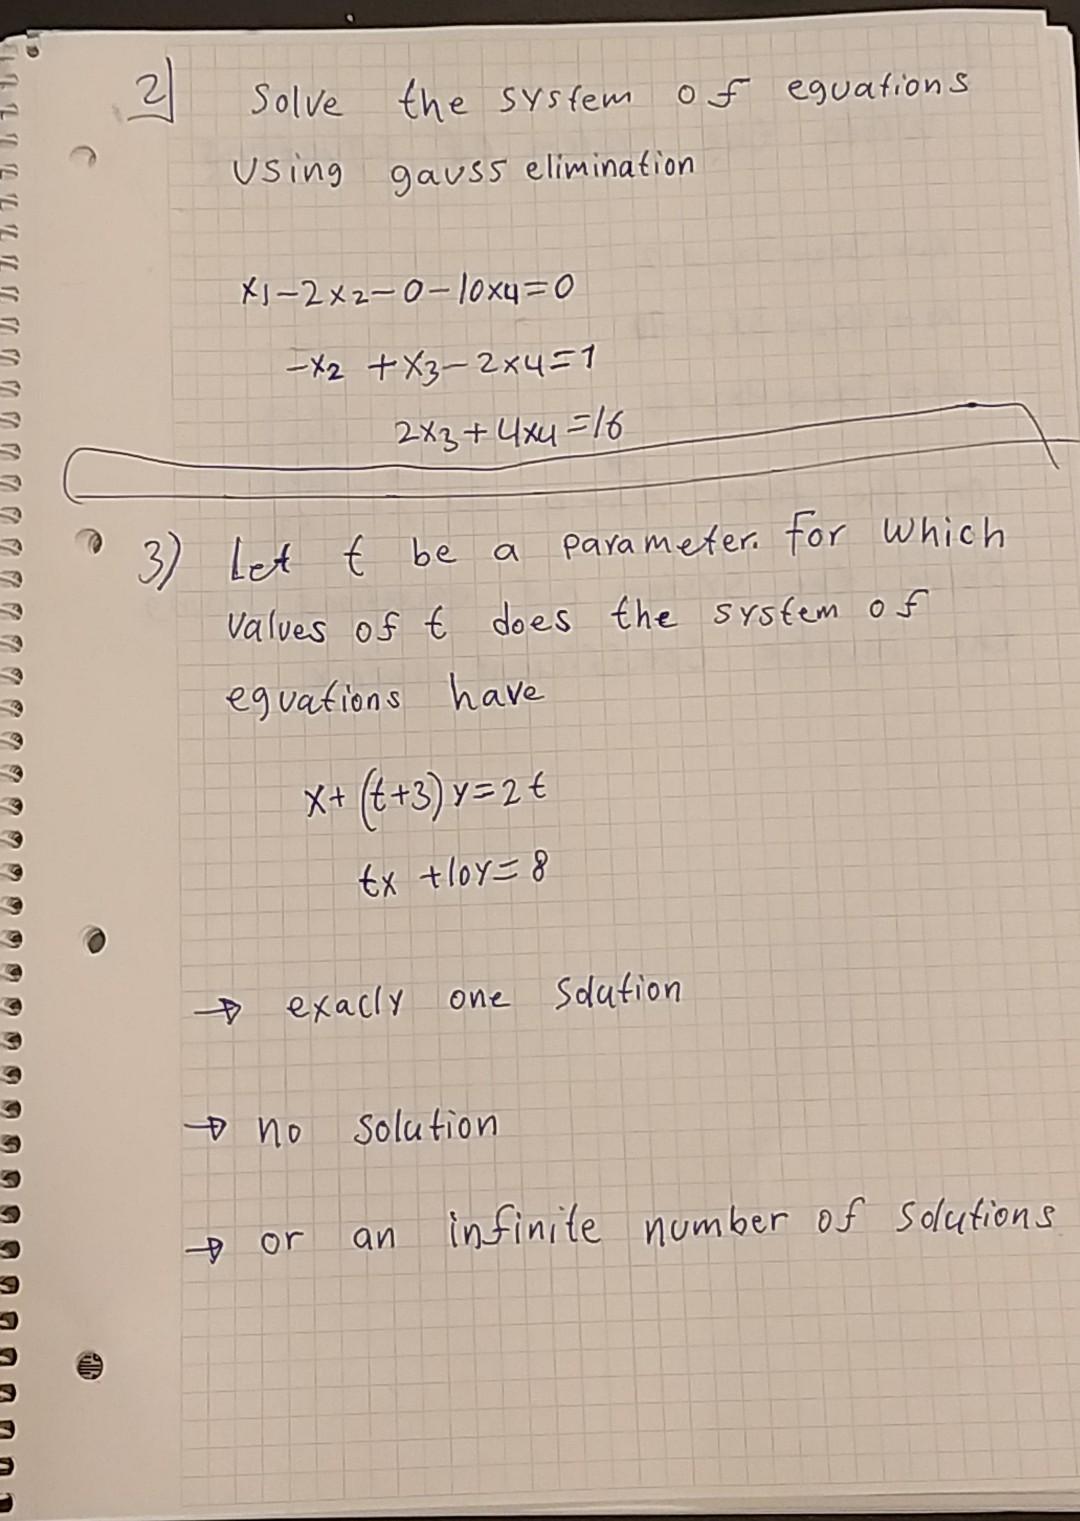 2) Solve the system of equations
Using gauss elimination
x1-2x2-0-10x4=0
-x2 +x3-2x4=1
2x3+4x4=16
3) Let t be a parameter. For which
values of t does the system of
equations have
x+(t+3)y=2t
tx +10y=8
→ exacly one solution
→ no solution
→ or an infinite number of solutions